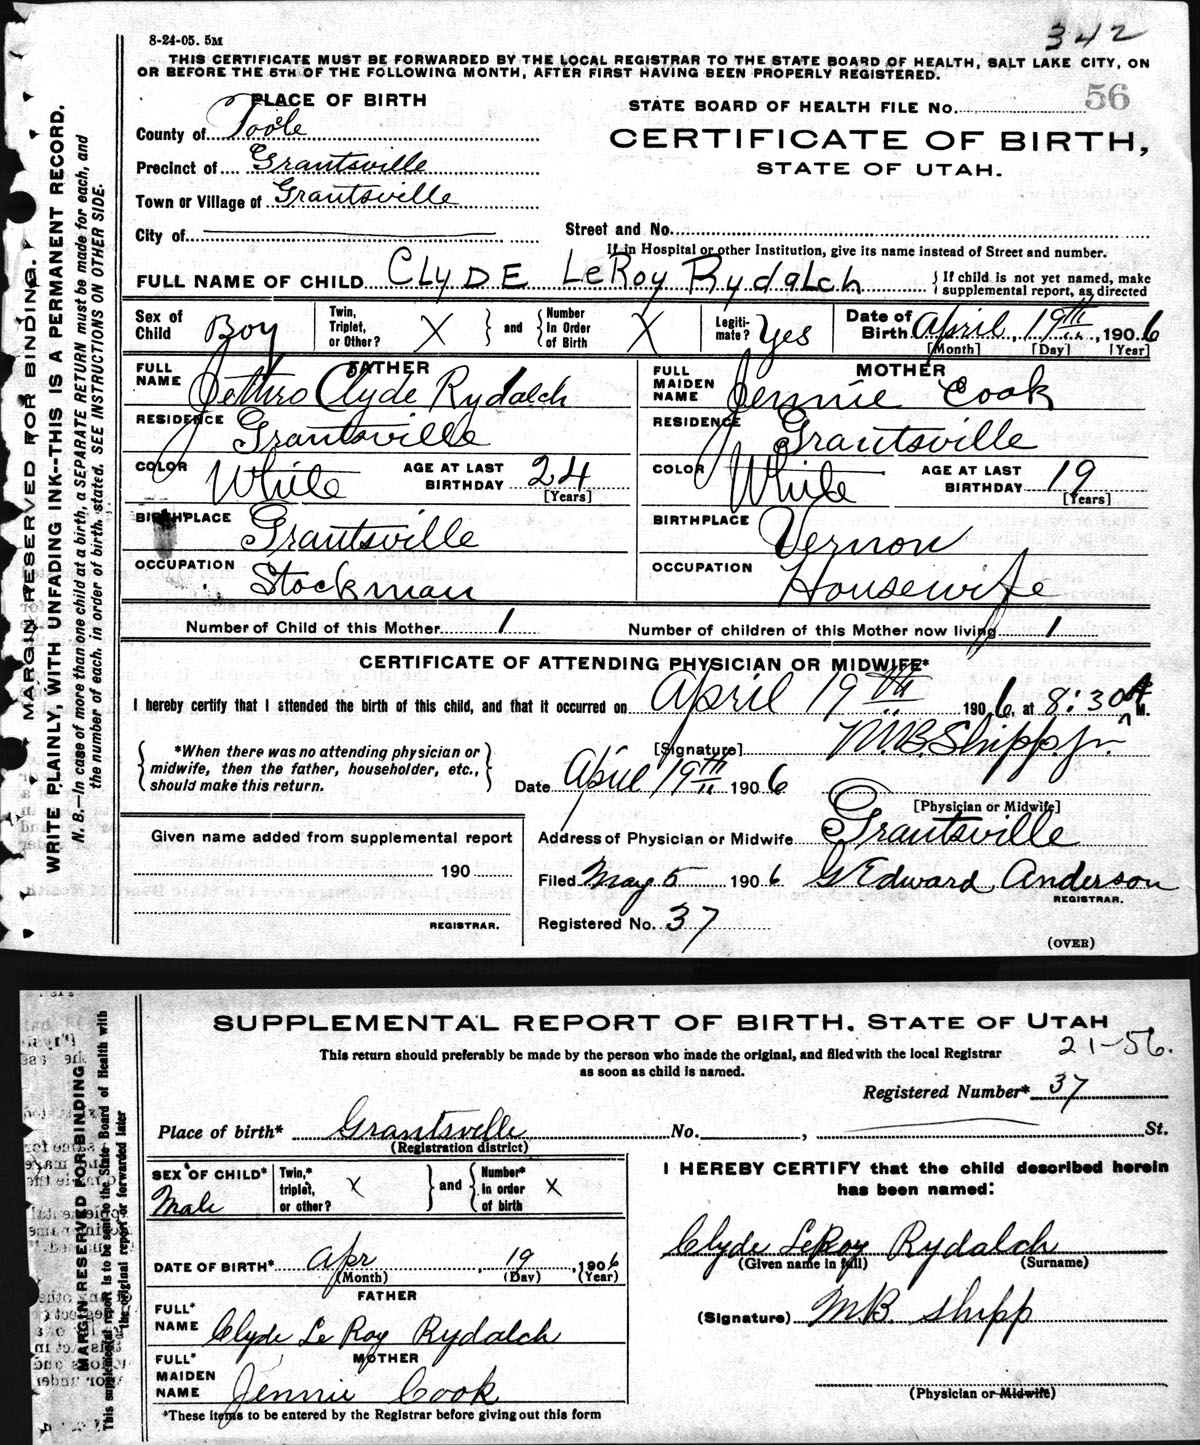 342
8-24-05. 5M
THIS CERTIFICATE MUST BE FORWARDED BY THE LOCAL REGISTRAR TO THE STATE BOARD OF HEALTH, SALT LAKE CITY, ON
OR BEFORE THE 5TH OF THE FOLLOWING MONTH, AFTER FIRST HAVING BEEN PROPERLY REGISTERED.
MARGIN RESERVED FOR BINDING.
WRITE PLAINLY, WITH UNFADING INK--THIS IS A PERMANENT RECORD.
N. B.—In case of more than one child at a birth, a SEPARATE RETURN must be made for each, and
the number of each, in order of birth, stated. SEE INSTRUCTIONS ON OTHER SIDE.
PLACE OF BIRTH
County of Tooele
Precinct of Grantsville
Town or Village of Grantsville
City of
STATE BOARD OF HEALTH FILE No. 56
CERTIFICATE OF BIRTH,
STATE OF UTAH.
Street and No.
If in Hospital or other Institution, give its name instead of Street and number.
FULL NAME OF CHILD CLYDE LeRoy Rydalch { If child is not yet named, make
supplemental report, as directed
Sex of Child Boy Twin, Triplet, or Other? X } and { Number In Order of Birth X Legiti-mate? Yes Date of Birth April, 19th, 1906
[Month] [Day] [Year]
FATHER
FULL NAME Jethro Clyde Rydalch
RESIDENCE Grantsville
COLOR White AGE AT LAST BIRTHDAY 24
[Years]
BIRTHPLACE Grantsville
OCCUPATION Stockman
MOTHER
FULL MAIDEN NAME Jennie Cook
RESIDENCE Grantsville
COLOR White AGE AT LAST BIRTHDAY 19
[Years]
BIRTHPLACE Vernon
OCCUPATION Housewife
Number of Child of this Mother 1 Number of children of this Mother now living 1
CERTIFICATE OF ATTENDING PHYSICIAN OR MIDWIFE*
I hereby certify that I attended the birth of this child, and that it occurred on April 19th 1906, at 8:30 A M.
{ *When there was no attending physician or
midwife, then the father, householder, etc.,
should make this return. }
[Signature] M.B. Shipp. Jr.
Date April 19th 1906
[Physician or Midwife]
Address of Physician or Midwife Grantsville
Given name added from supplemental report
190
REGISTRAR.
Filed May 5 1906 G Edward Anderson
REGISTRAR.
Registered No. 37
(OVER)
SUPPLEMENTAL REPORT OF BIRTH. STATE OF UTAH
21-56.
This return should preferably be made by the person who made the original, and filed with the local Registrar
as soon as child is named.
MARGIN RESERVED FOR BINDING
This supplemental report is to be sent to the State Board of Health with
the original report or forwarded later
Registered Number* 37
Place of birth* Grantsville No. , St.
(Registration district)
SEX OF CHILD* Male Twin,* triplet, or other? X } and { Number* In order of birth X
DATE OF BIRTH* Apr 19, 1906
(Month) (Day) (Year)
FATHER
FULL* NAME Clyde Le Roy Rydalch
MOTHER
FULL* MAIDEN NAME Jennie Cook
*These items to be entered by the Registrar before giving out this form
I HEREBY CERTIFY that the child described herein
has been named:
Clyde LeRoy Rydalch
(Given name in full) (Surname)
(Signature) MB. Shipp
(Physician or Midwife)